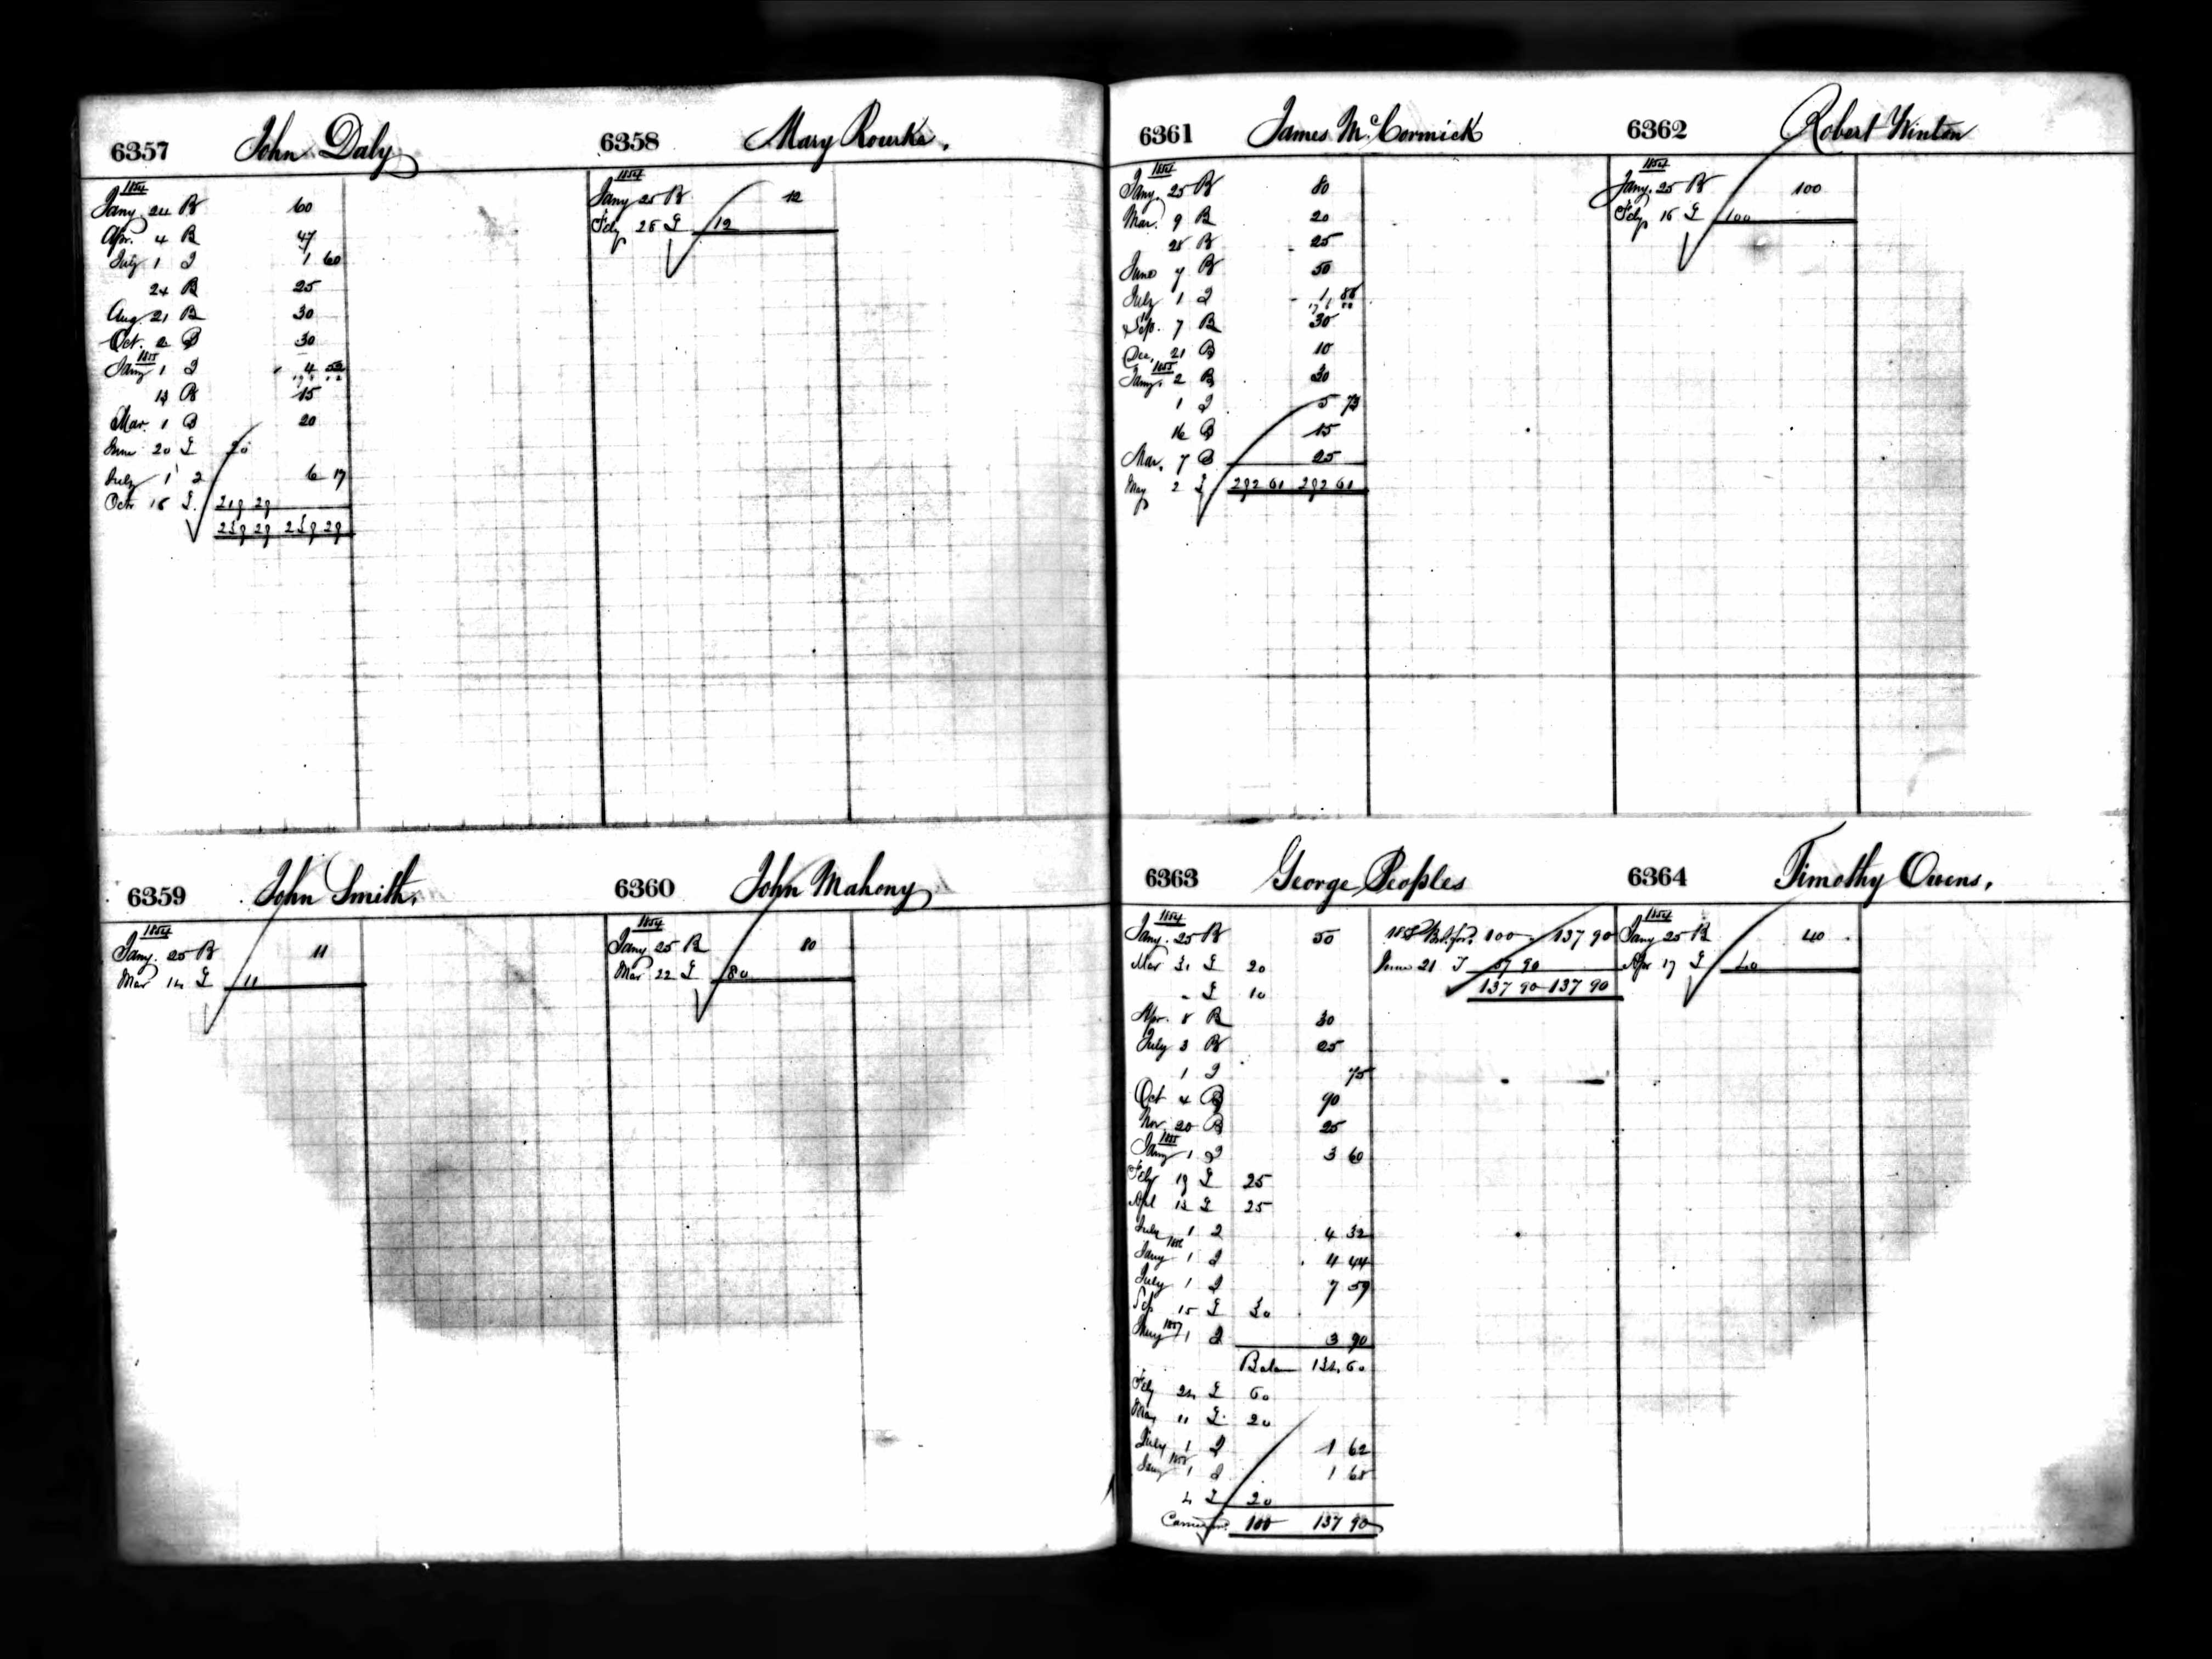 6357 John Daly
1854
Jany 24 B 60
Apr. 4 B 47
July 1 I 1 60
24 B 25
Aug. 21 B 30
Oct. 2 B 30
1855
Jany 1 I 4 52
13 B 15
Mar. 1 B 20
June 20 L 20
July 1 I 6 17
Octr 16 L 219 29
239 29 239 29
6358 Mary Rourke.
1854
Jany 25 B 12
Feby 28 L 12
6359 John Smith.
1854
Jany. 25 B 11
Mar 14 L 11
6360 John Mahony
1854
Jany 25 B 80
Mar 22 L 80
6361 James McCormick
1854
Jany. 25 B 80
Mar. 9 B 20
28 B 25
June 7 B 50
July 1 I 1 88
Sep. 7 B 30
Dec. 21 B 10
1855
Jany. 2 B 30
1 I 5 73
16 B 15
Mar. 7 B 25
May 2 L 292 61 292 61
6362 Robert Winton
1854
Jany. 25 B 100
Feby 16 L 100
6363 George Peoples
1854
Jany. 25 B 50
Mar 31 L 20
" L 10
Apr. 8 B 30
July 3 B 25
1 I 75
Oct 4 B 90
Nov. 20 B 25
1855
Jany 1 I 3 60
Feby 19 L 25
Apl 13 L 25
July 1 I 4 32
1856
Jany 1 I 4 44
July 1 I 7 59
Sep 15 L 30
1857
Jany 1 I 3 90
Balan 134.60
Feby 24 L 60
May 11 L 20
July 1 I 1 62
1858
Jany 1 I 1 68
4 L 20
100 137 90
1858 Bt. for. 100 137 90
June 21 L 37 90
137 90 137 90
6364 Timothy Owens.
1854
Jany 25 B 40
Apr 17 L 40